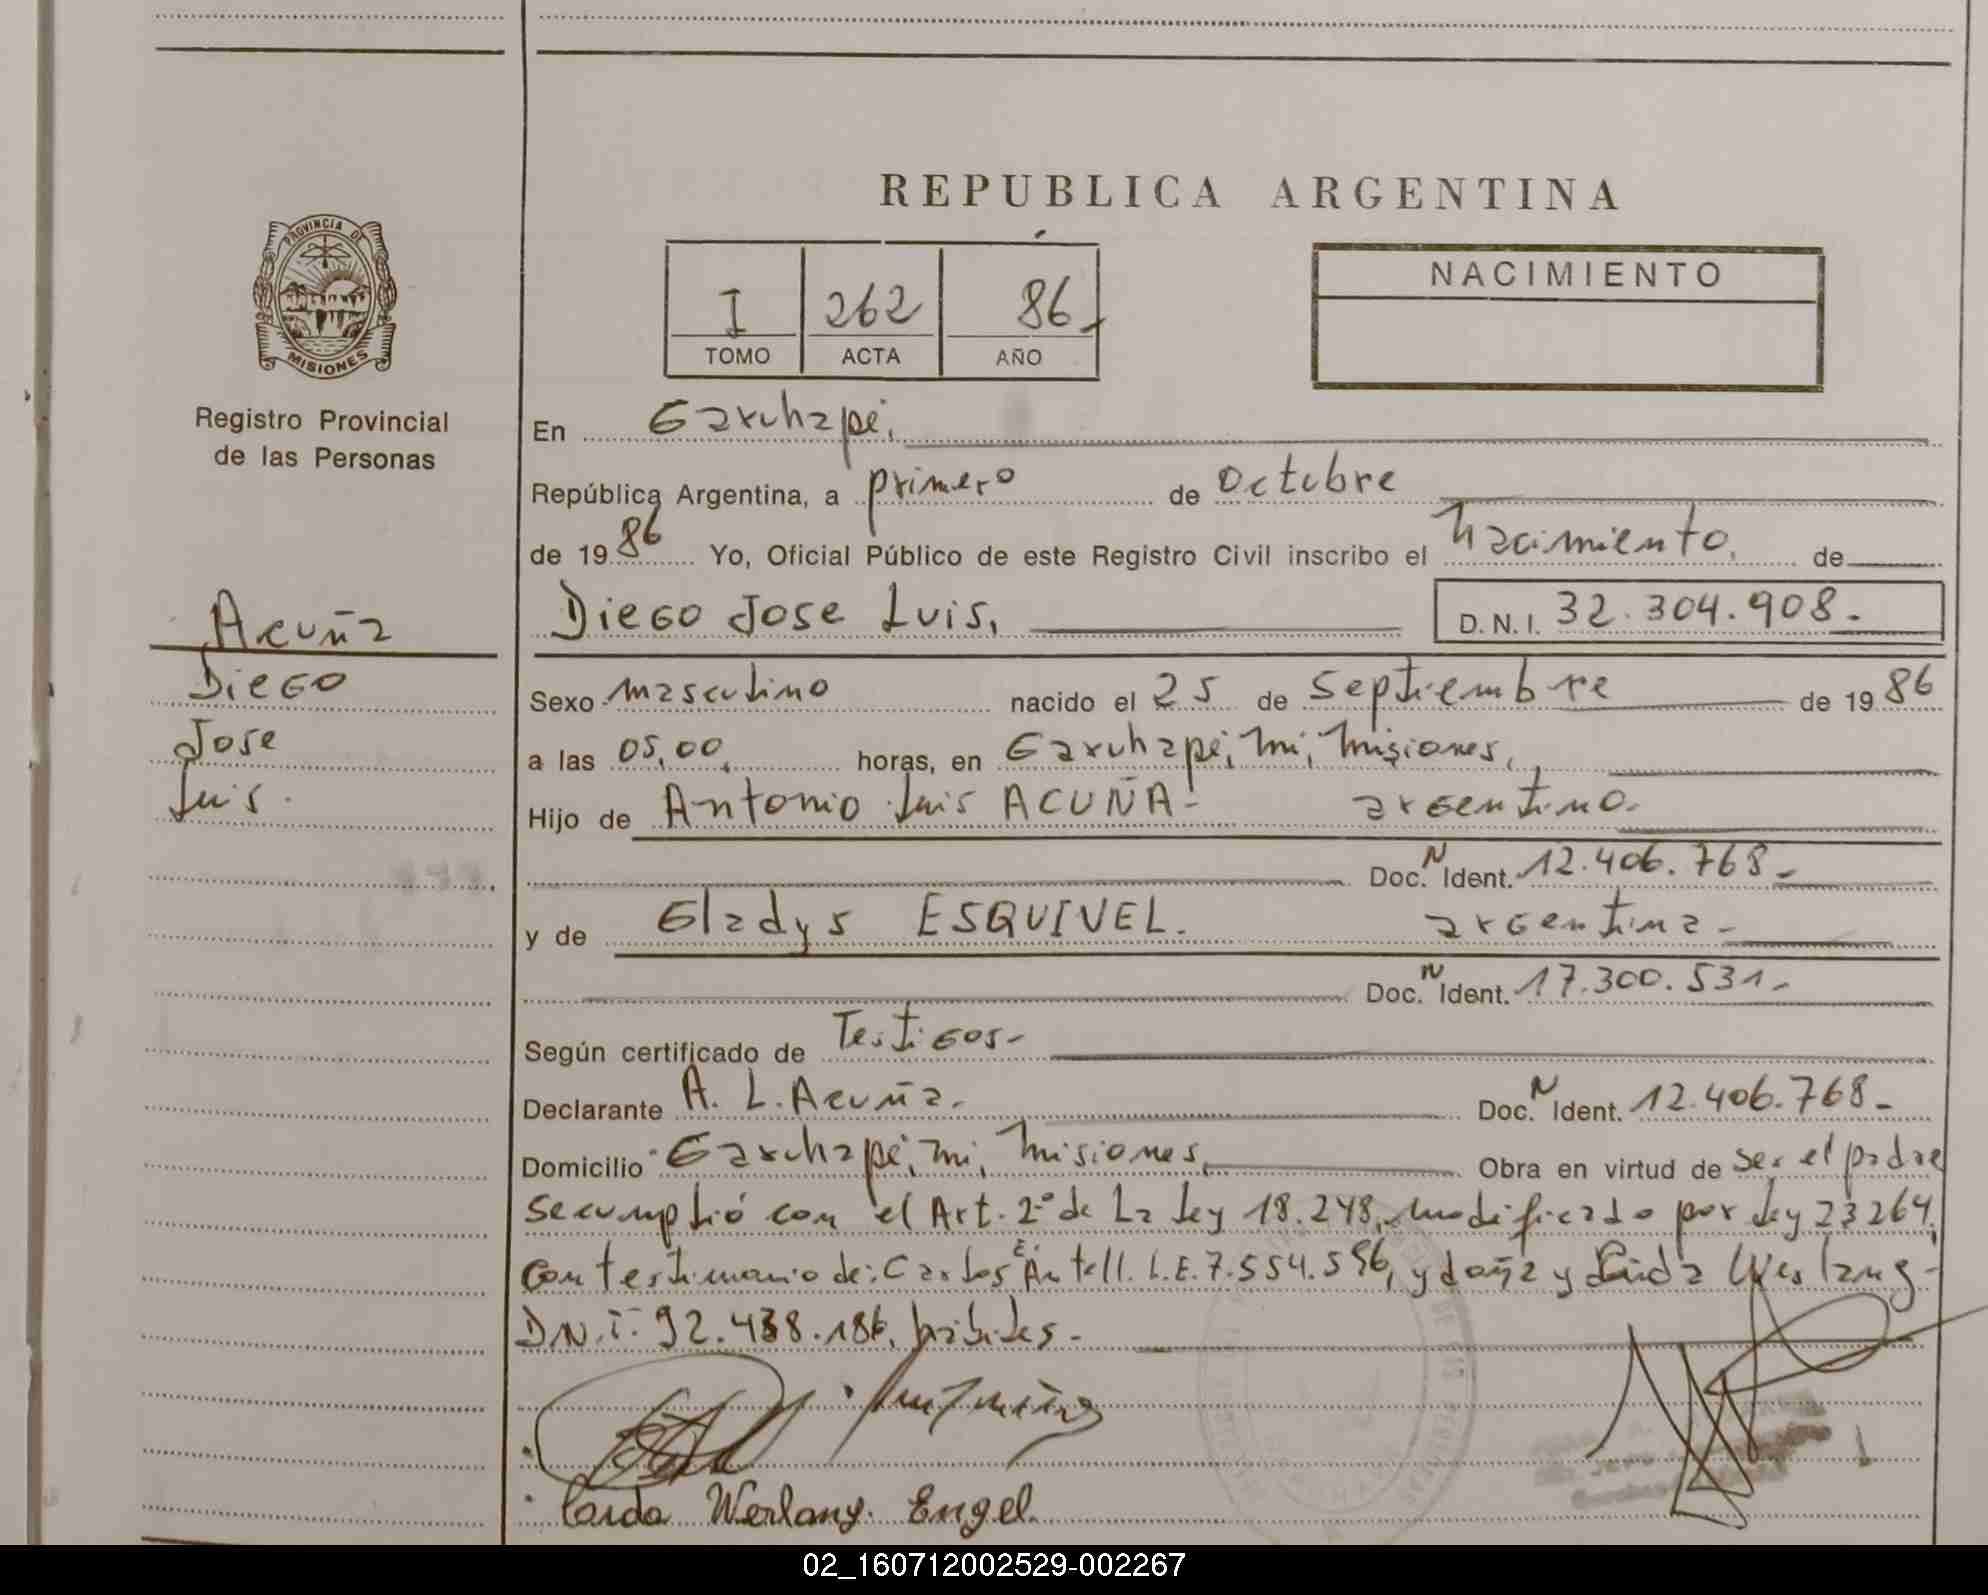 REPUBLICA ARGENTINA
PROVINCIA DE
MISIONES
Registro Provincial
de las Personas
I 262 86
TOMO ACTA AÑO
NACIMIENTO
En Garuhapé,
República Argentina, a primero de Octubre
de 1986 Yo, Oficial Público de este Registro Civil inscribo el nacimiento, de
Diego Jose Luis, D.N.I. 32.304.908.-
Acuña
Diego
Jose
Luis.
Sexo masculino nacido el 25 de septiembre de 1986
a las 05,00, horas, en Garuhapé, mi, misiones,
Hijo de Antonio Luis ACUÑA- argentino.
Doc. N Ident. 12.406.768-
y de Gladys ESQUIVEL. argentina-
Doc. N Ident. 17.300.531-
Según certificado de Testigos-
Declarante A. L. Acuña. Doc. N Ident. 12.406.768-
Domicilio Garuhapé, mi, misiones, Obra en virtud de ser el padre
se cumplió con el Art. 2º de La Ley 18.248, modificado por Ley 23264,
con testimonio de: Carlos E. Antell. L.E. 7.554.596, y doña y Werlang-
D.N.I. 92.438.186, hábiles-
Werlang. Engel.
02_160712002529-002267